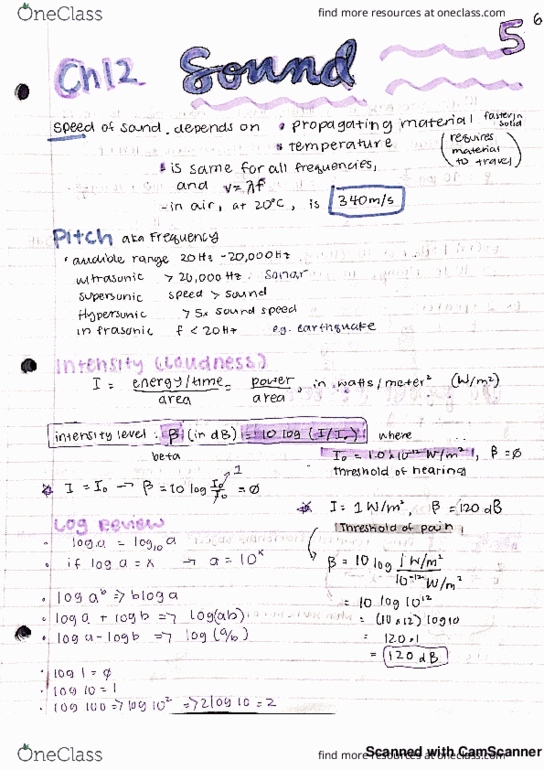 OneClass
find more resources at oneclass.com
5 6
Ch12 Sound
speed of sound . depends on • propagating material faster in solid
• temperature (requires material to travel)
• is same for all frequencies,
and v=λf
- in air, at 20°C, is 340m/s
Pitch aka Frequency
• audible range 20 Hz - 20,000 Hz
ultrasonic > 20,000 Hz. sonar
supersonic speed > sound
Hypersonic > 5x sound speed
infrasonic f < 20 Hz e.g. earthquake
Intensity (Loudness)
I = energy/time / area = power / area , in watts/meter² (W/m²)
intensity level : β (in dB) = 10 log (I/I₀) where
beta
I₀ = 1.0 × 10⁻¹² W/m², β = ∅
threshold of hearing
I = I₀ → β = 10 log I₀/I₀ = ∅ 1
I = 1 W/m², β = 120 dB
Threshold of pain
Log Review
• log a = log₁₀ a
• if log a = x → a = 10ˣ
β = 10 log 1 W/m² / 10⁻¹² W/m²
• log aᵇ => b log a
= 10 log 10¹²
• log a + log b => log(ab)
= (10×12) log 10
• log a - log b => log (a/b)
= 120·1
= 120 dB
• log 1 = ∅
• log 10 = 1
• log 100 => log 10² => 2 log 10 = 2
OneClass
find more resources at oneclass.com
Scanned with CamScanner